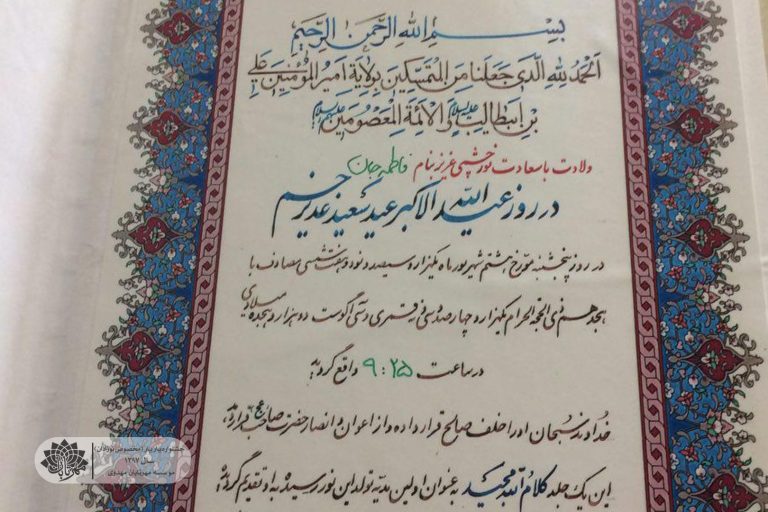 بِسْمِ اللهِ الرَّحْمنِ الرَّحِيمِ
اَلْحَمْدُ لِلّهِ الَّذى جَعَلَنا مِنَ الْمُتَمَسِّكينَ بِوِلايَةِ اَميرِ الْمُؤْمِنينَ عَلِىِّ
بْنِ اَبيطالِبٍ عليه السلام وَ الْاَئِمَّةِ الْمَعْصُومينَ عليهم السلام!
ولادت با سعادت نور چشمی عزیز بنام فاطمه جان
در روز عید الله الاکبر عید سعید غدیر خم
در روز پنجشنبه مورخ هشتم شهریور ماه یکهزار و سیصد و نود و هفت شمسی مصادف با
هجدهم ذی الحجة الحرام یکهزار و چهارصد و سی و نه قمری و سی آگوست دو هزار و هجده میلادی
در ساعت ۹:۲۵ واقع گردید
خداوند سبحان او را خلف صالح قرار داده و از اعوان و انصار حضرت صاحب عج قرار دهد
این یک جلد کلام الله مجید به عنوان اولین هدیه تولد این نور سیده به او تقدیم گردید
جشنواره بهار یار (مخصوص نوزادان)
سال ۱۳۹۷
موسسه مهربانان مهدوی